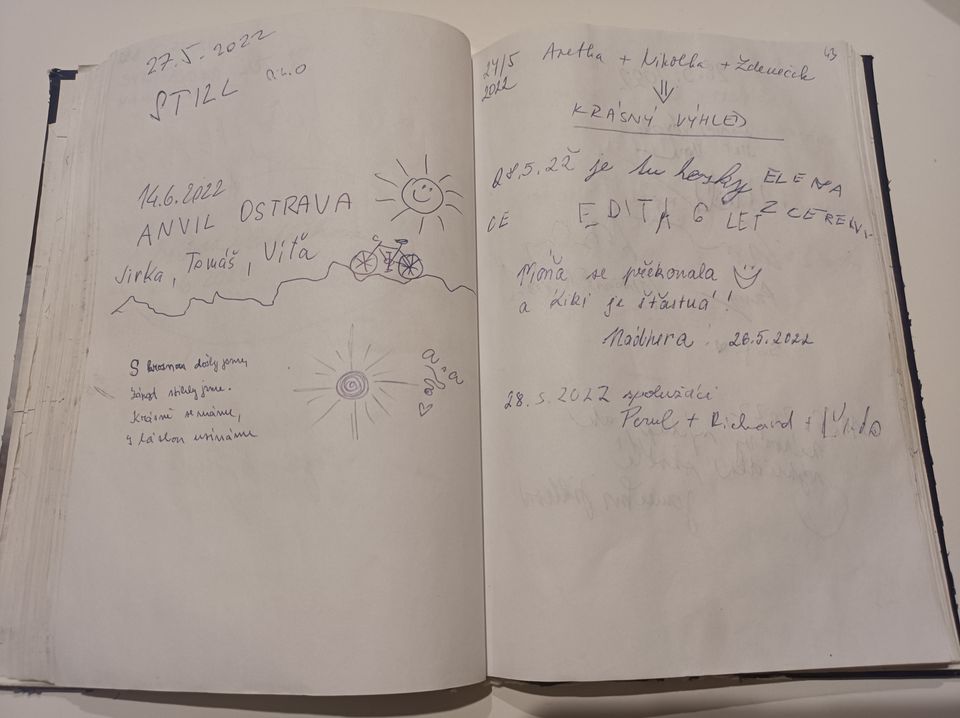 27.5.2022
STILL
14.6.2022
ANVIL OSTRAVA
Jirka, Tomáš, Víťa
S krosnou došly jsme,
západ stihly jsme.
Krásně se máme,
s láskou usínáme
43
24/5 Anetka + Nikolka + Zdeneček
2022
KRÁSNÝ VÝHLED
28.5.22 je tu hezky ELENA
EDITA 6 LET Z
Moňa se překonala
a Kiki je šťastná!
Nádhera! 26.5.2022
28.5.2022 spolužáci
+ Richard +